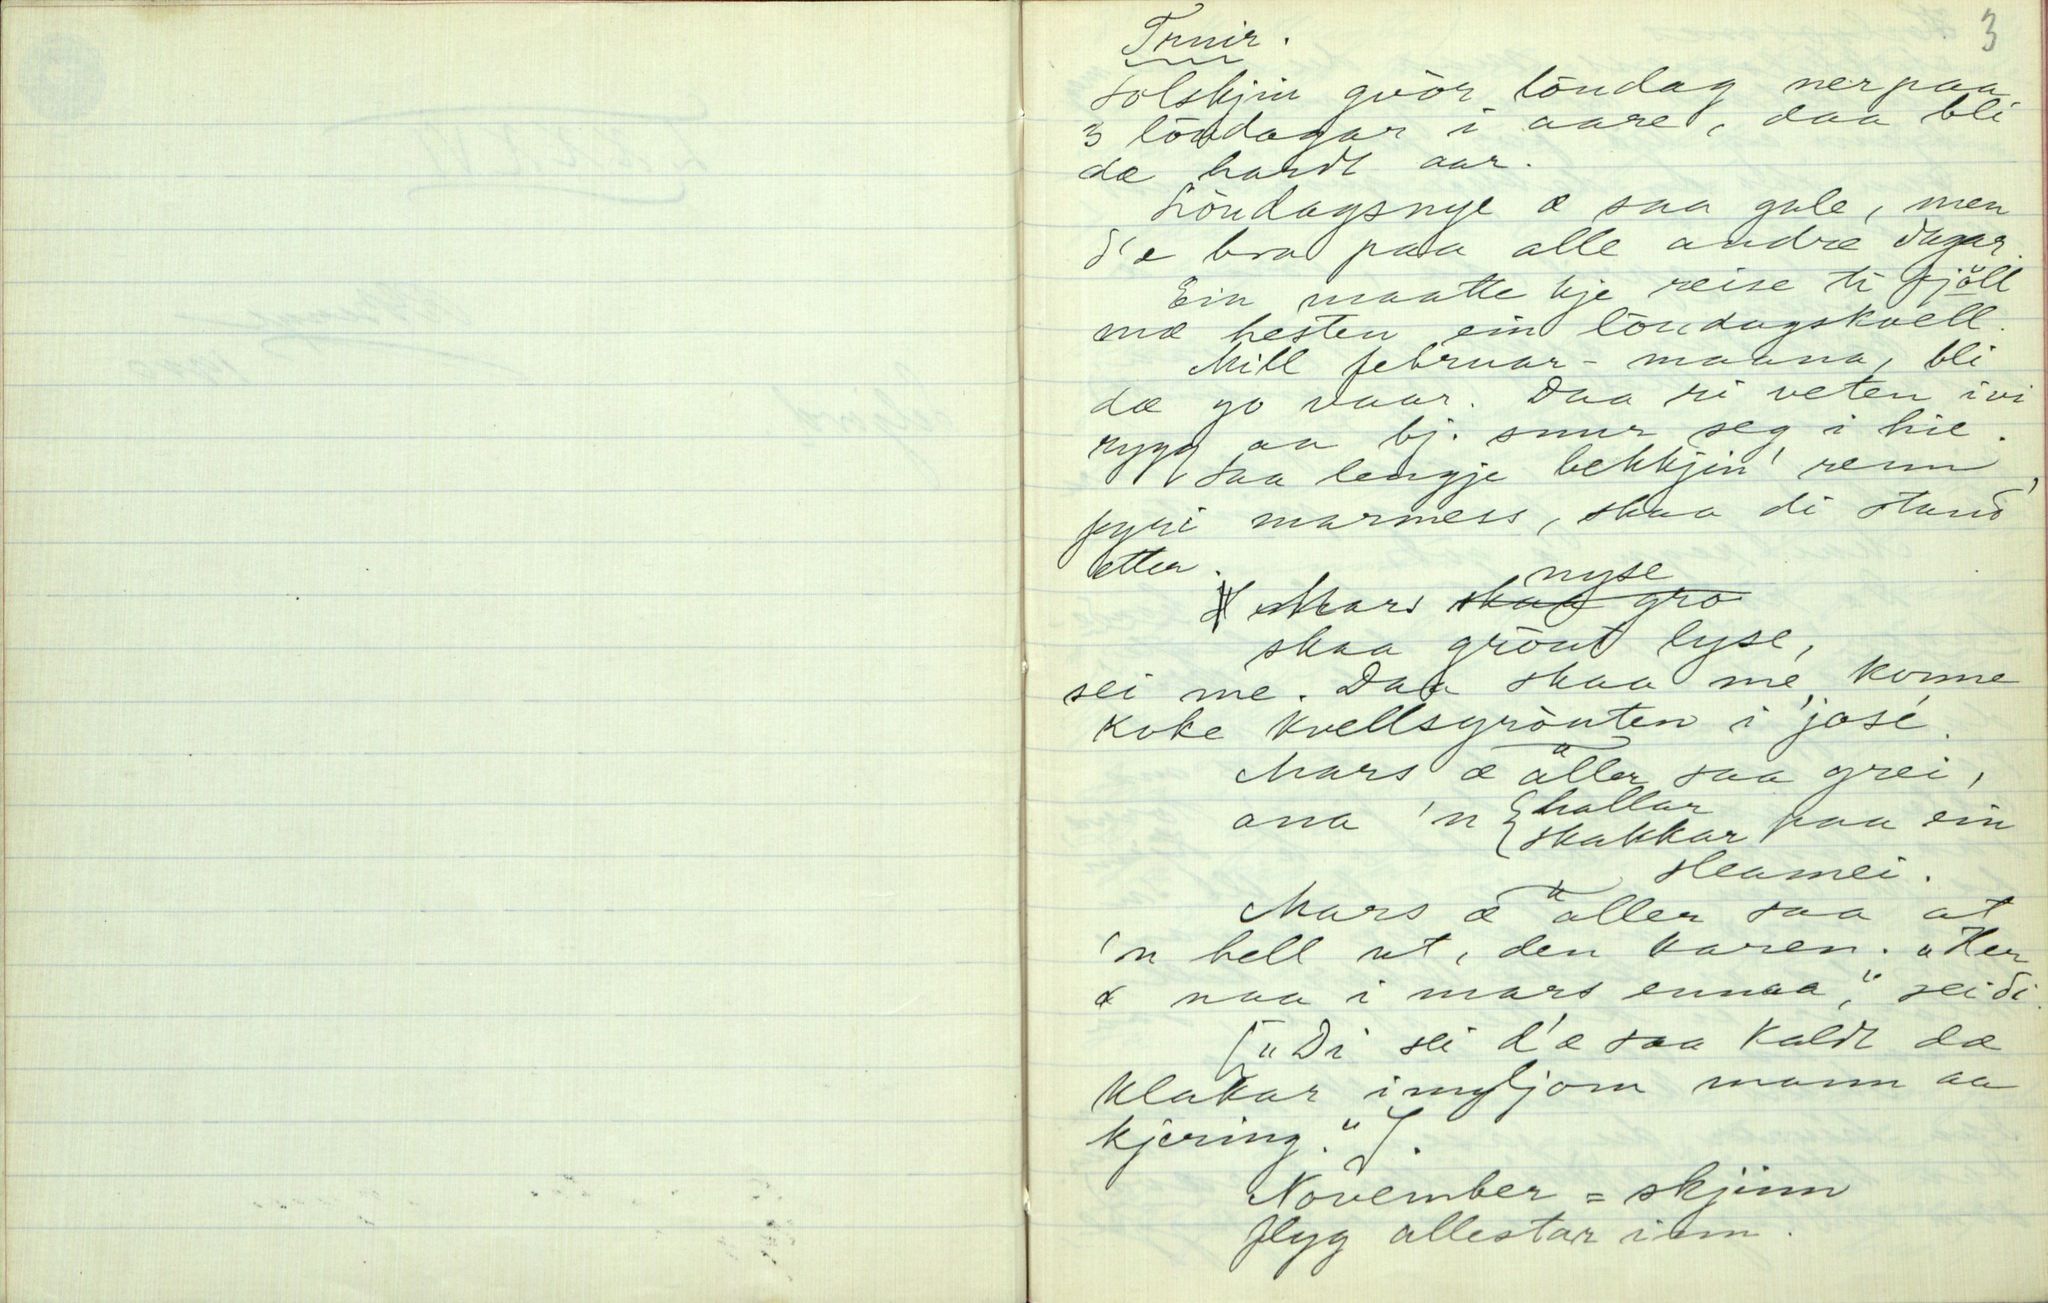 3
Truir.
Solskjin gvör löndag nerpaa
3 löndagar i aare, daa bli
dæ hardt aar.
Löndagsnye æ saa gale, men
d'æ bra paa alle andre dagar.
Ein maatte kje reise ti fjöll
mæ hesten ein löndagskvell.
Mill februar-maana, bli
dæ go vaar. Daa ri veten ivi
rygg aa bj. snur seg i hie.
Saa lengje bekkjin' renn
fyri marmess, skaa di stand'
etter.
nyse
Mars skaa gro
skaa grönt lyse,
sei me. Daa skaa me konne
koke kvellsgrauten i jose.
Mars æ aller saa grei,
ana 'n hallar
skakkar paa ein
sleamei.
Mars æ aller saa at
'n hell ut, den karen. "Her
æ naa i mars ennaa," sei di.
["Di sei d'æ saa kaldt dæ
klakar imyljom mann aa
kjering."].
November = skjinn
flyg allestar inn.